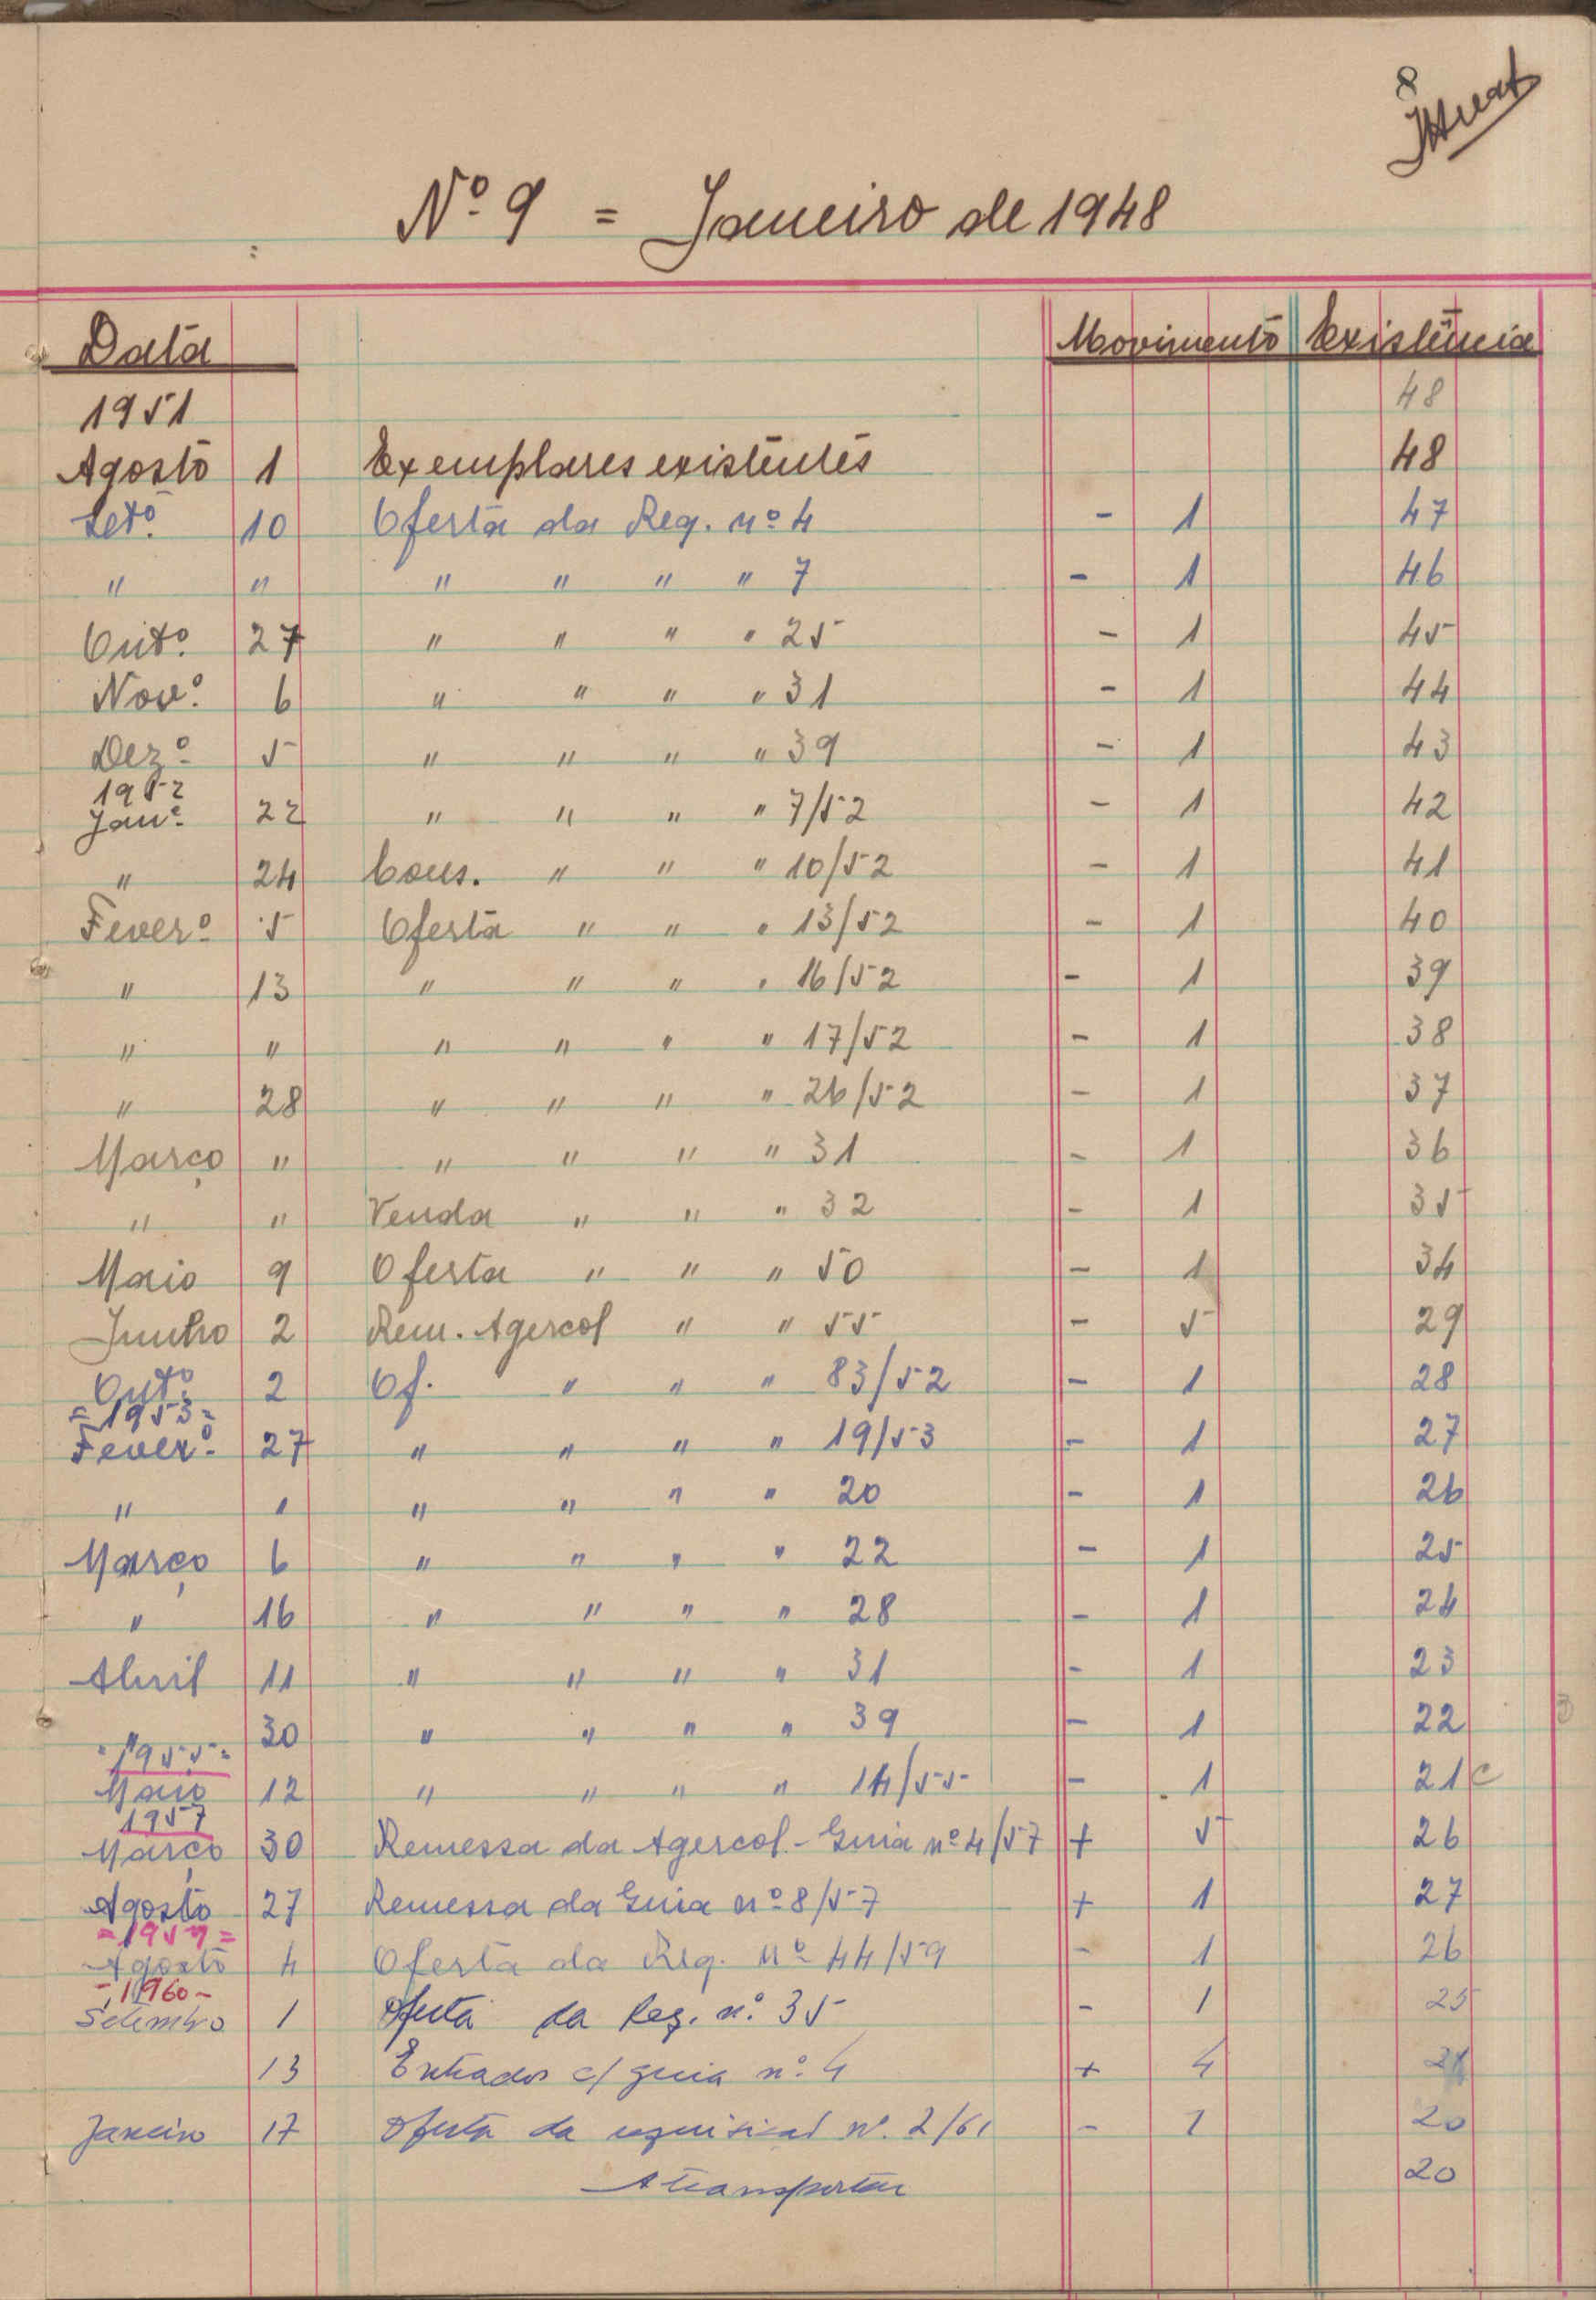 8
Nº 9 = Janeiro de 1948
Data Movimento Existência
1951 48
Agosto 1 Exemplares existentes 48
Setº. 10 Oferta da Req. nº 4 - 1 47
" " " " " " 7 - 1 46
Outº. 27 " " " " 25 - 1 45
Novº. 6 " " " " 31 - 1 44
Dezº. 5 " " " " 39 - 1 43
1952
Janº. 22 " " " " 7/52 - 1 42
" 24 Cons. " " " 10/52 - 1 41
Feverº. 5 Oferta " " " 13/52 - 1 40
" 13 " " " " 16/52 - 1 39
" " " " " " 17/52 - 1 38
" 28 " " " " 26/52 - 1 37
Março " " " " " 31 - 1 36
" " Venda " " " 32 - 1 35
Maio 9 Oferta " " " 50 - 1 34
Junho 2 Rem. Agercol " " 55 - 5 29
Outº. 2 Of. " " " 83/52 - 1 28
= 1953 =
Feverº. 27 " " " " 19/53 - 1 27
" " " " " " 20 - 1 26
Março 6 " " " " 22 - 1 25
" 16 " " " " 28 - 1 24
Abril 11 " " " " 31 - 1 23
" 30 " " " " 39 - 1 22
= 1955 =
Maio 12 " " " " 14/55 - 1 21 c
1957
Março 30 Remessa da Agercol - Guia nº 4/57 + 5 26
Agosto 27 Remessa da Guia nº 8/57 + 1 27
= 1959 =
Agosto 4 Oferta da Req. nº 44/59 - 1 26
- 1960 -
Setembro 1 Oferta da Req. nº. 35 - 1 25
13 Entrados c/ guia nº. 4 + 4
Janeiro 17 Oferta da nº. 2/61 - 1 20
A transportar 20